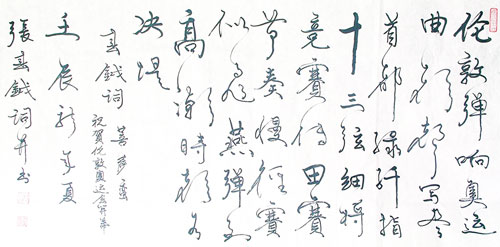 伦敦弹响奥运
曲写尽
首都绿纤指
十三弦细将
竞赛传田赛
节奏慢径赛
似飞燕弹到
高潮时
决堤
春钺词 菩萨蛮
祝贺伦敦奥运会开幕
壬辰新年夏
張春鉞詞并书